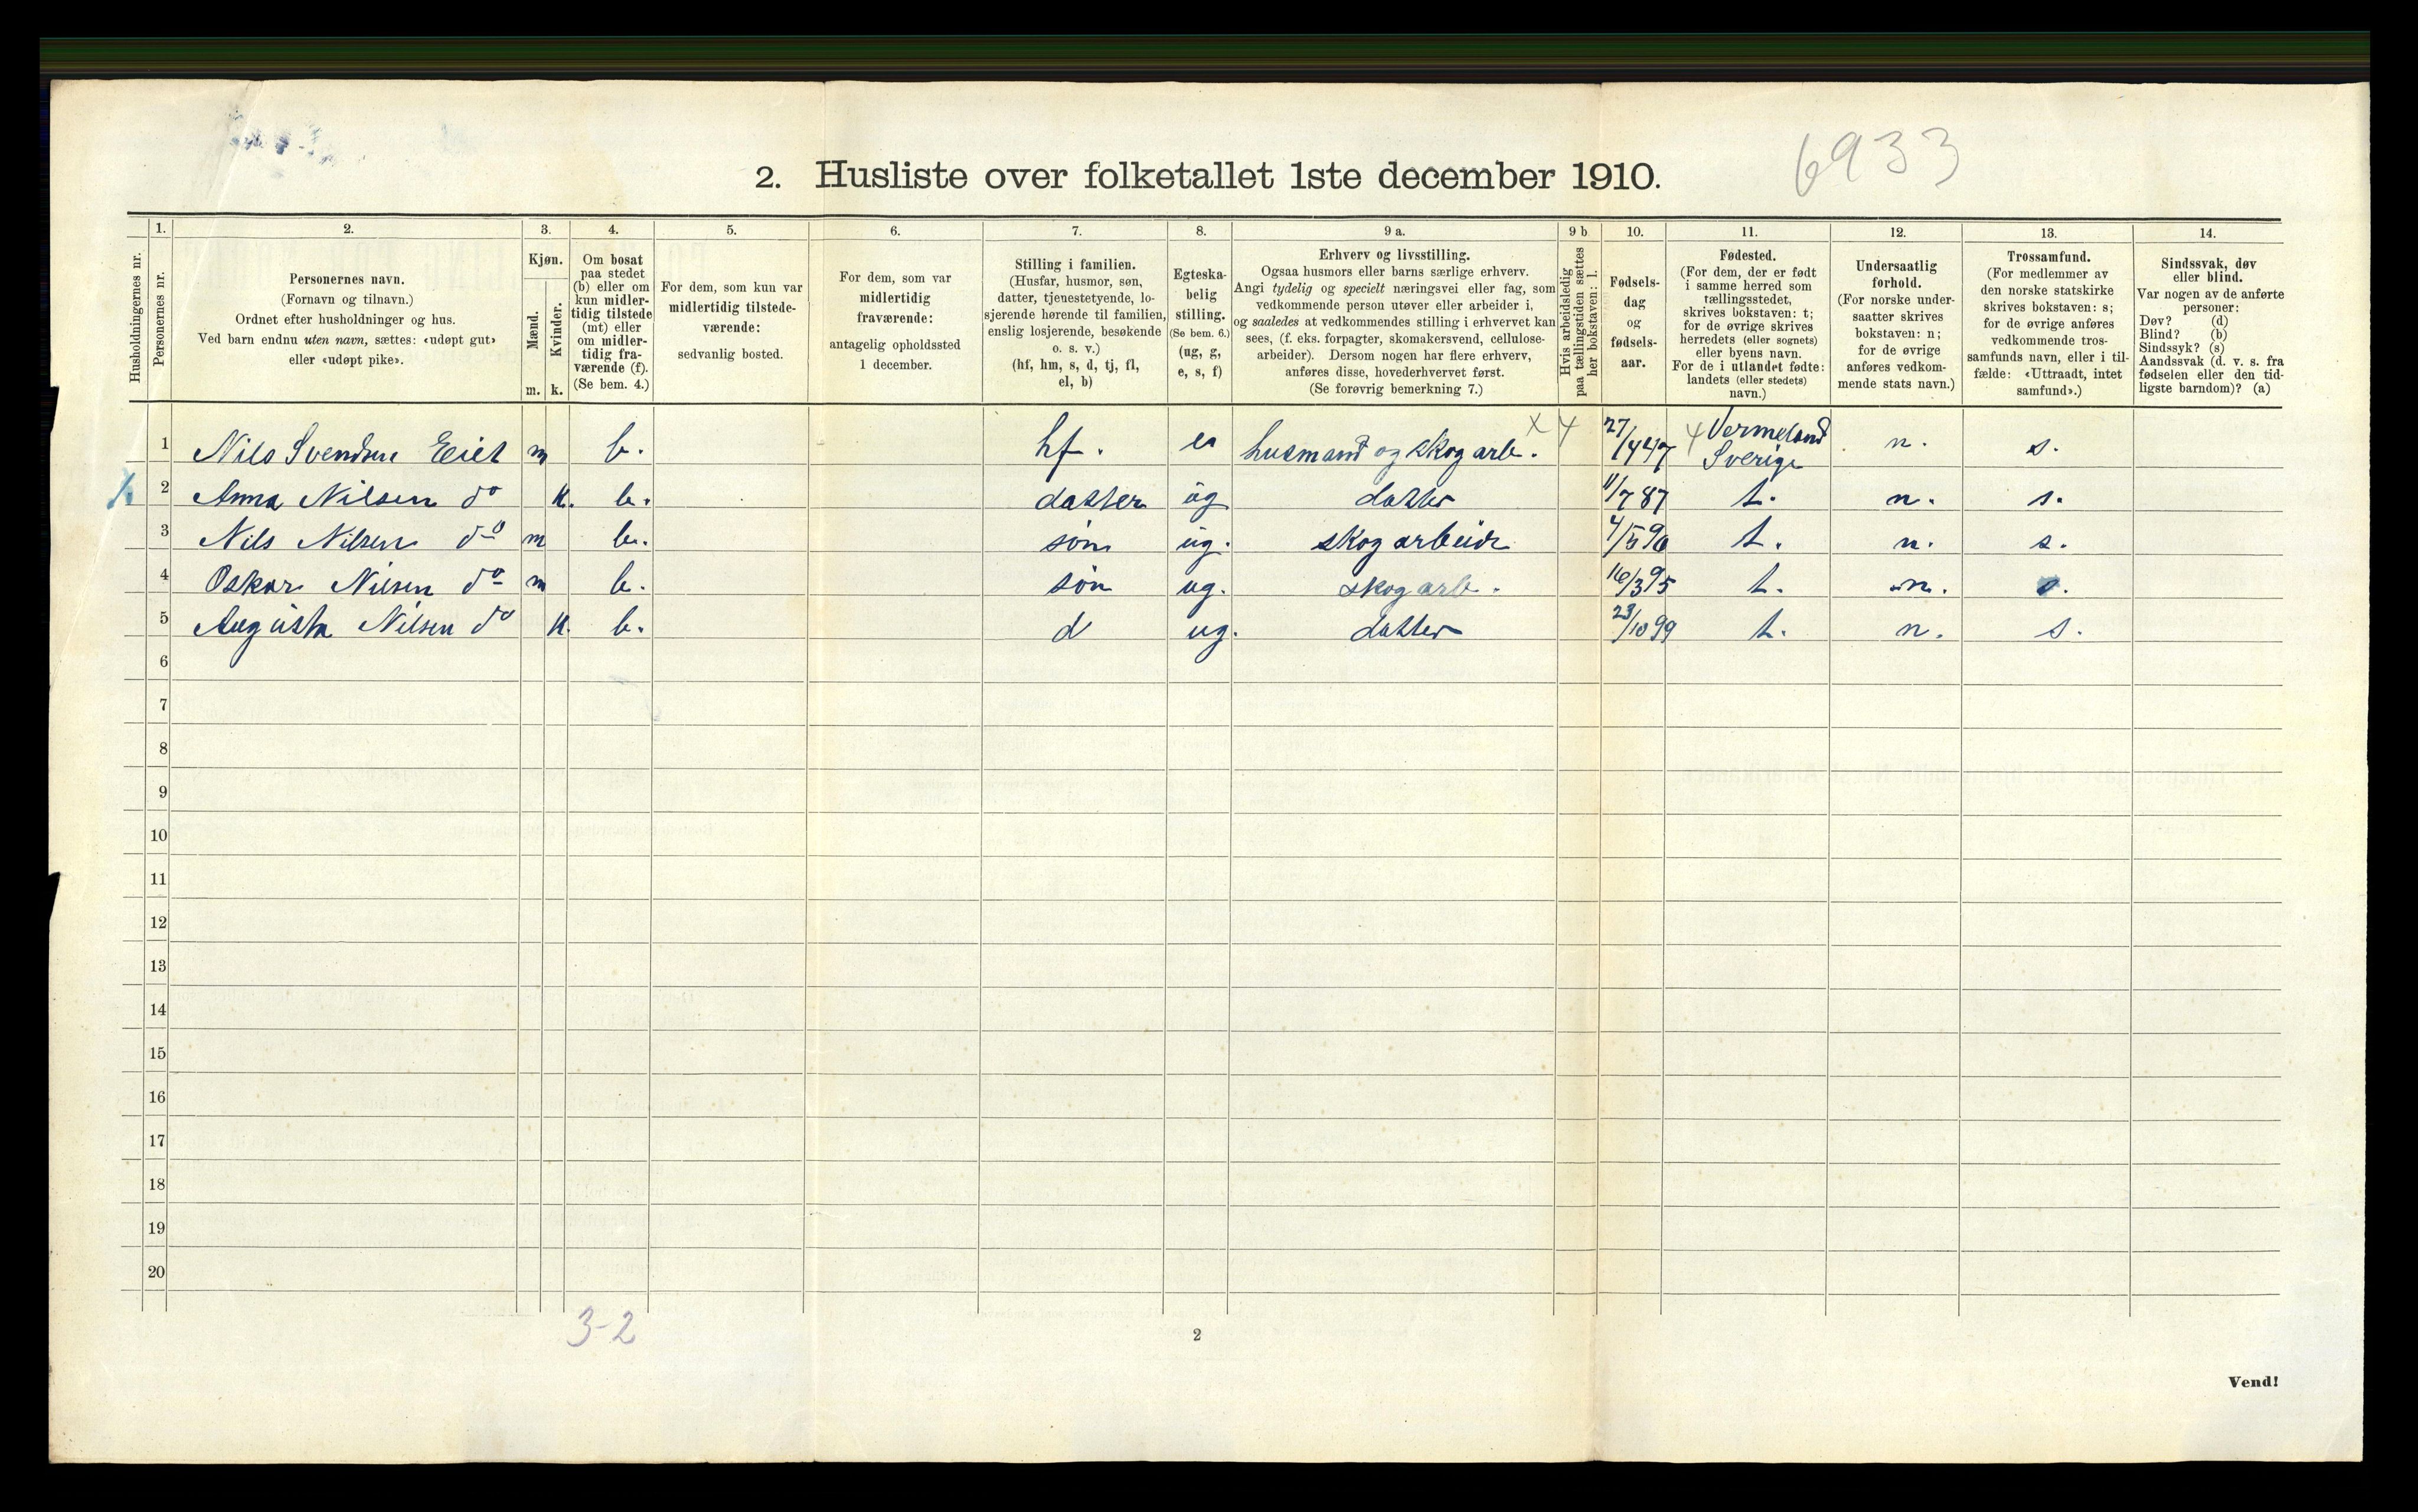 6933
2. Husliste over folketallet 1ste december 1910.
Husholdningernes nr.
1.
Personernes nr.
2.
Personernes navn.
(Fornavn og tilnavn.)
Ordnet efter husholdninger og hus.
Ved barn endnu uten navn, sættes: «udøpt gut»
eller «udøpt pike».
3.
Kjøn.
Mænd.
Kvinder.
m. k.
4.
Om bosat
paa stedet
(b) eller om
kun midler-
tidig tilstede
(mt) eller
om midler-
tidig fra-
værende (f).
(Se bem. 4.)
5.
For dem, som kun var
midlertidig tilstede-
værende:
sedvanlig bosted.
6.
For dem, som var
midlertidig
fraværende:
antagelig opholdssted
1 december.
7.
Stilling i familien.
(Husfar, husmor, søn,
datter, tjenestetyende, lo-
sjerende hørende til familien,
enslig losjerende, besøkende
o. s. v.)
(hf, hm, s, d, tj, fl,
el, b)
8.
Egteska-
belig
stilling.
(Se bem. 6.)
(ug, g,
e, s, f)
9 a.
Erhverv og livsstilling.
Ogsaa husmors eller barns særlige erhverv.
Angi tydelig og specielt næringsvei eller fag, som
vedkommende person utøver eller arbeider i,
og saaledes at vedkommendes stilling i erhvervet kan
sees, (f. eks. forpagter, skomakersvend, cellulose-
arbeider). Dersom nogen har flere erhverv,
anføres disse, hovederhvervet først.
(Se forøvrig bemerkning 7.)
9 b
Hvis arbeidsledig
paa tællingstiden sættes
her bokstaven: l.
10.
Fødsels-
dag
og
fødsels-
aar.
11.
Fødested.
(For dem, der er født
i samme herred som
tællingsstedet,
skrives bokstaven: t;
for de øvrige skrives
herredets (eller sognets)
eller byens navn.
For de i utlandet fødte:
landets (eller stedets)
navn.)
12.
Undersaatlig
forhold.
(For norske under-
saatter skrives
bokstaven: n;
for de øvrige
anføres vedkom-
mende stats navn.)
13.
Trossamfund.
(For medlemmer av
den norske statskirke
skrives bokstaven: s;
for de øvrige anføres
vedkommende tros-
samfunds navn, eller i til-
fælde: «Uttraadt, intet
samfund».)
14.
Sindssvak, døv
eller blind.
Var nogen av de anførte
personer:
Døv? (d)
Blind? (b)
Sindssyk? (s)
Aandssvak (d. v. s. fra
fødselen eller den tid-
ligste barndom)? (a)
1 Nils Svendsen Eiet m b. hf. e husmand og skog arb. x 27/4 47 Vermeland Sverige n. s.
2 Anna Nilsen do k. b. datter ug datter 11/7 87 t. n. s.
3 Nils Nilsen do m b. søn ug. skog arbeidr 4/5 90 t. n. s.
4 Oskar Nilsen do m b. søn ug. skog arb. 16/3 95 t. n. s.
5 Augusta Nilsen do k. b. d ug. datter 23/10 99 t. n. s.
6
7
8
9
10
11
12
13
14
15
16
17
18
19
20
3-2
2
Vend!